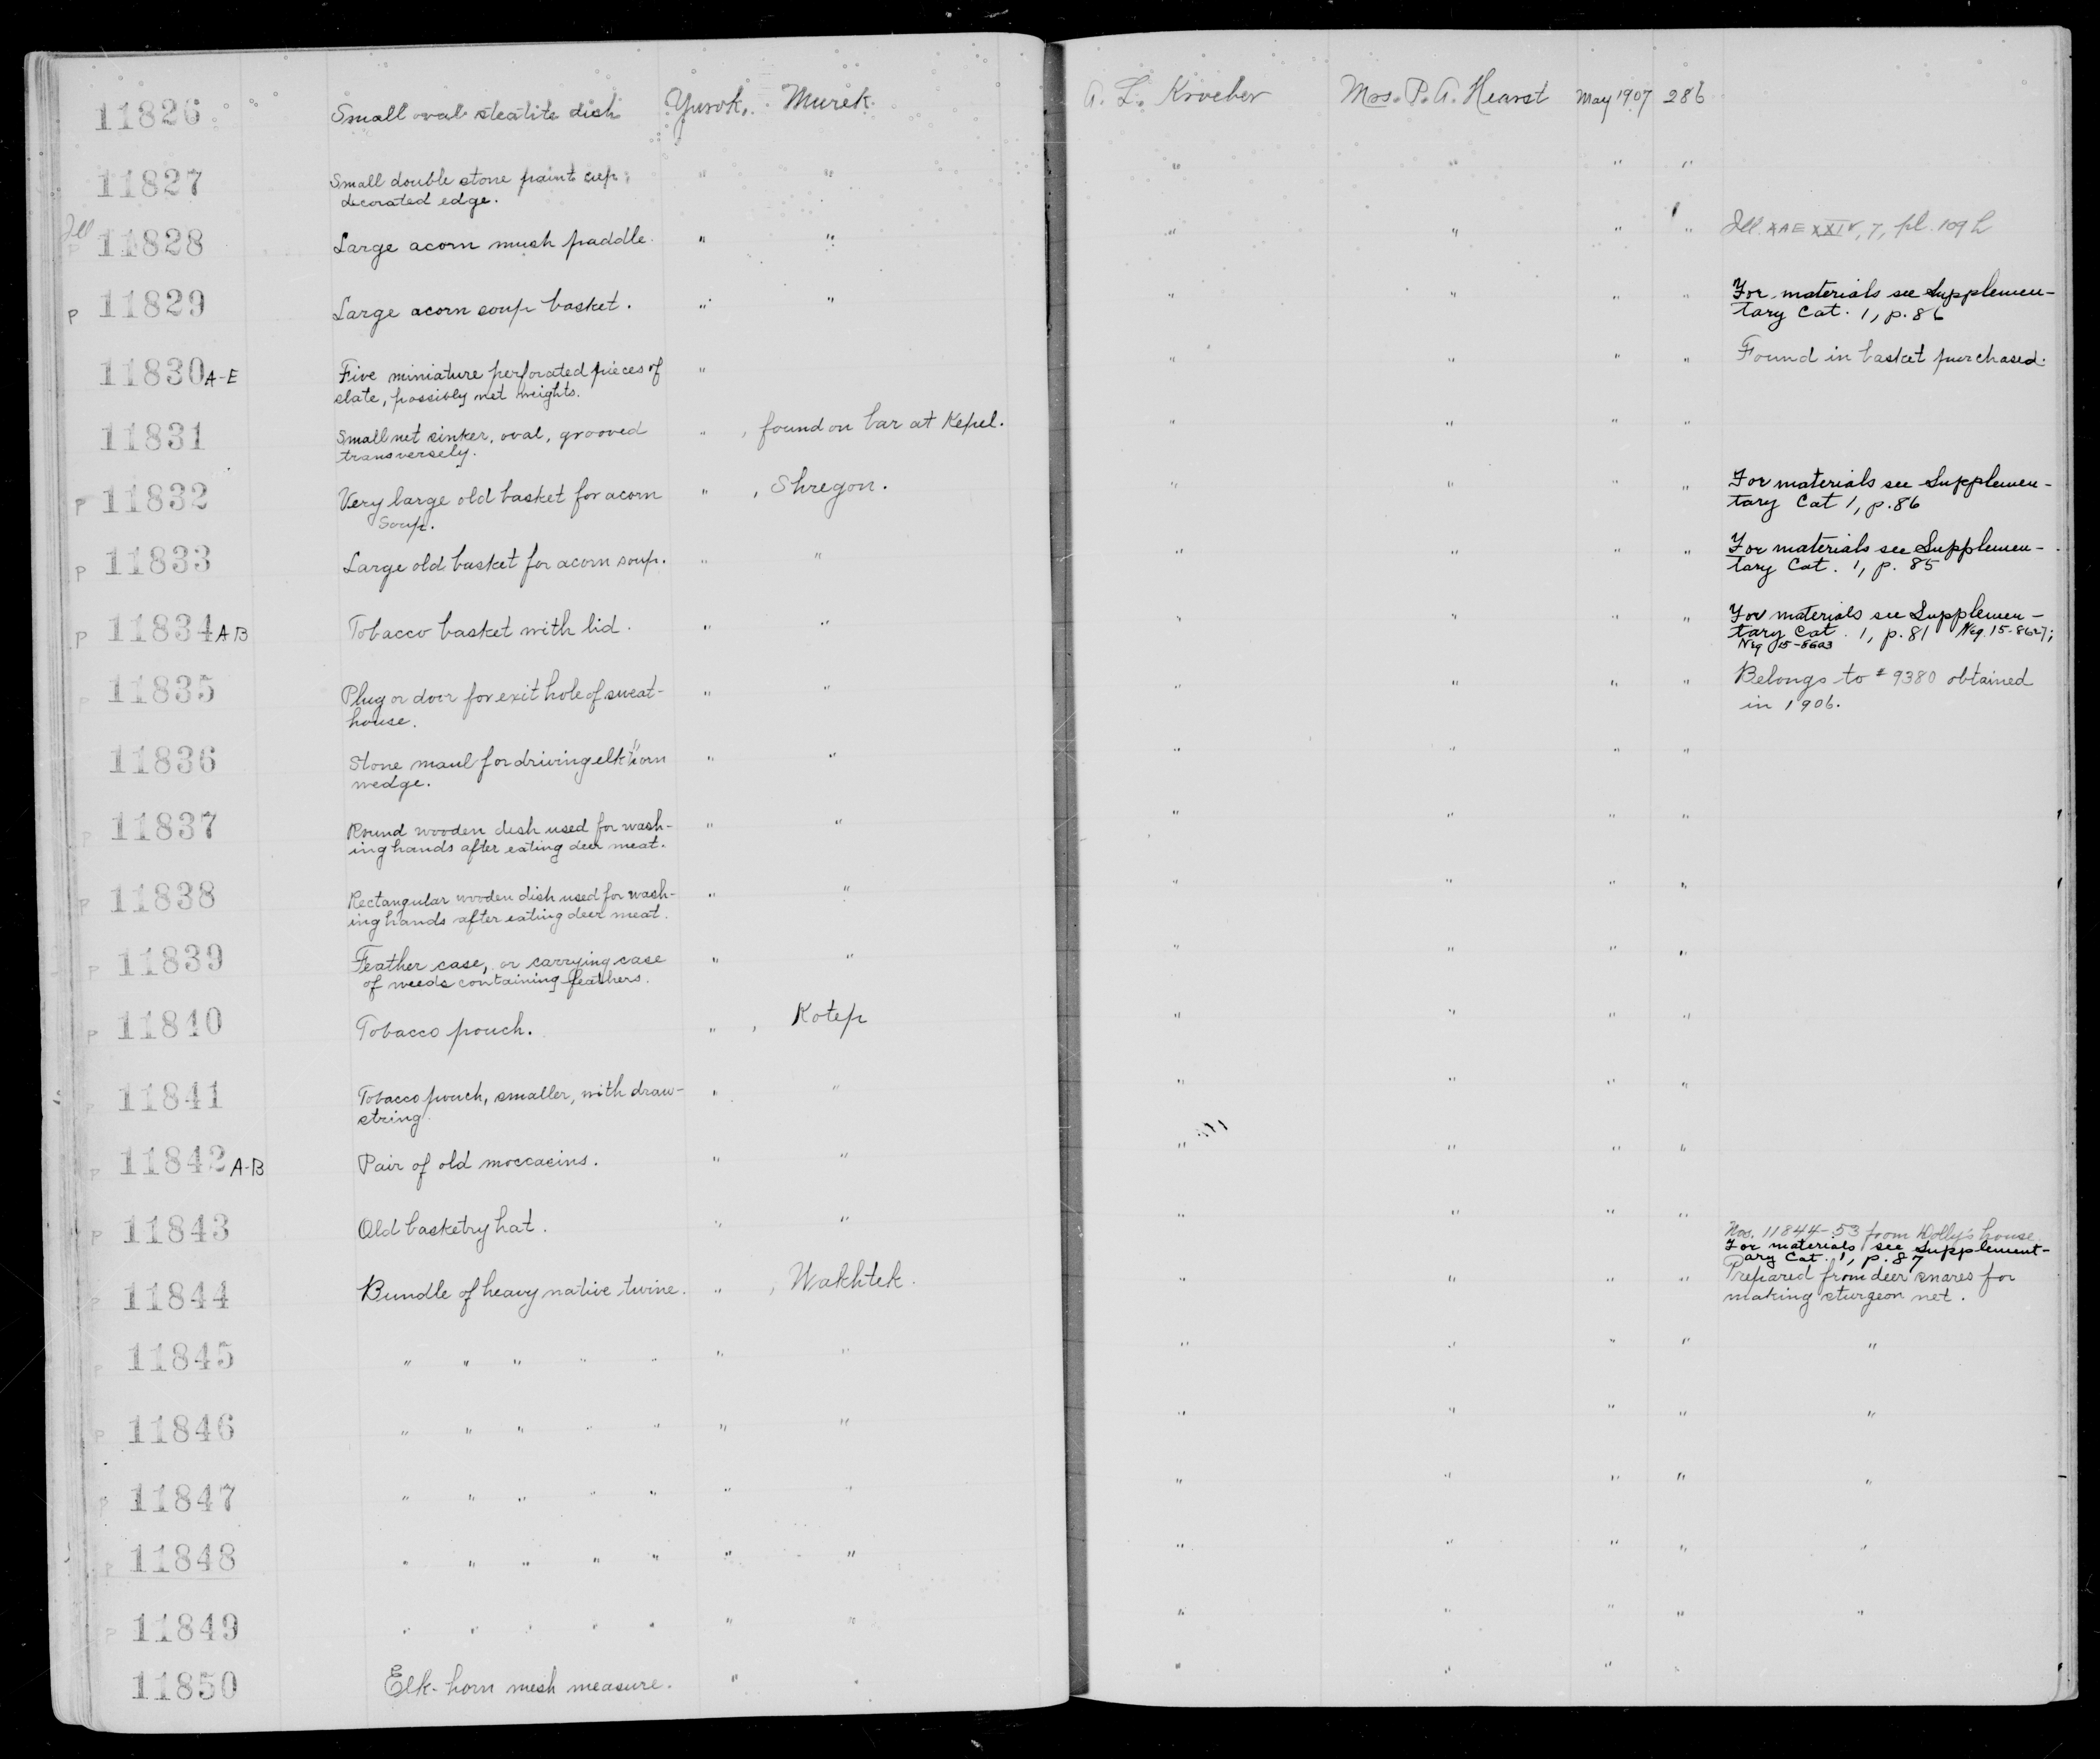 11826 Small oval steatite dish Yurok, Murek. A. L. Kroeber Mrs. P. A. Hearst May 1907 286
11827 Small double stone paint cup, " " " " " "
decorated edge.
Ill
11828 Large acorn mush paddle. " " " " " " Ill. AAE XXIV, 7, pl. 109 h
P 11829 Large acorn soup basket. " " " " " " For materials see Supplemen-
tary Cat. 1, p. 86
11830 A-E Five miniature perforated pieces of " " " " " Found in basket purchased.
slate, possibly net weights.
11831 Small net sinker, oval, grooved " , found on bar at Kepel. " " " "
transversely.
P 11832 Very large old basket for acorn " , Shregon. " " " " For materials see Supplemen-
soup. tary Cat 1, p. 86
P 11833 Large old basket for acorn soup. " " " " " " For materials see Supplemen-
tary Cat. 1, p. 85
P 11834 A B Tobacco basket with lid. " " " " " " For materials see Supplemen-
tary Cat. 1, p. 81 Neg. 15-8627;
Neg 15-8603
P 11835 Plug or door for exit hole of sweat- " " " " " " Belongs to #9380 obtained
house. in 1906.
11836 Stone maul for driving elk horn " " " " " "
wedge.
P 11837 Round wooden dish used for wash- " " " " " "
ing hands after eating deer meat.
P 11838 Rectangular wooden dish used for wash- " " " " " "
ing hands after eating deer meat.
P 11839 Feather case, or carrying case " " " " " "
of weeds containing feathers.
P 11840 Tobacco pouch. " , Kotep " " " "
P 11841 Tobacco pouch, smaller, with draw- " " " " " "
string.
P 11842 A-B Pair of old moccasins. " " " " " "
P 11843 Old basketry hat. " " " " " "
Nos. 11844-53 from Dolly's house
For materials see Supplement-
ary Cat. 1, p. 87
P 11844 Bundle of heavy native twine. " , Wakhtek. " " " " Prepared from deer snares for
making sturgeon net.
P 11845 " " " " " " " " " " " "
P 11846 " " " " " " " " " " " "
P 11847 " " " " " " " " " " " "
P 11848 " " " " " " " " " " " "
P 11849 " " " " " " " " " " " "
11850 Elk-horn mesh measure. " " " " " "